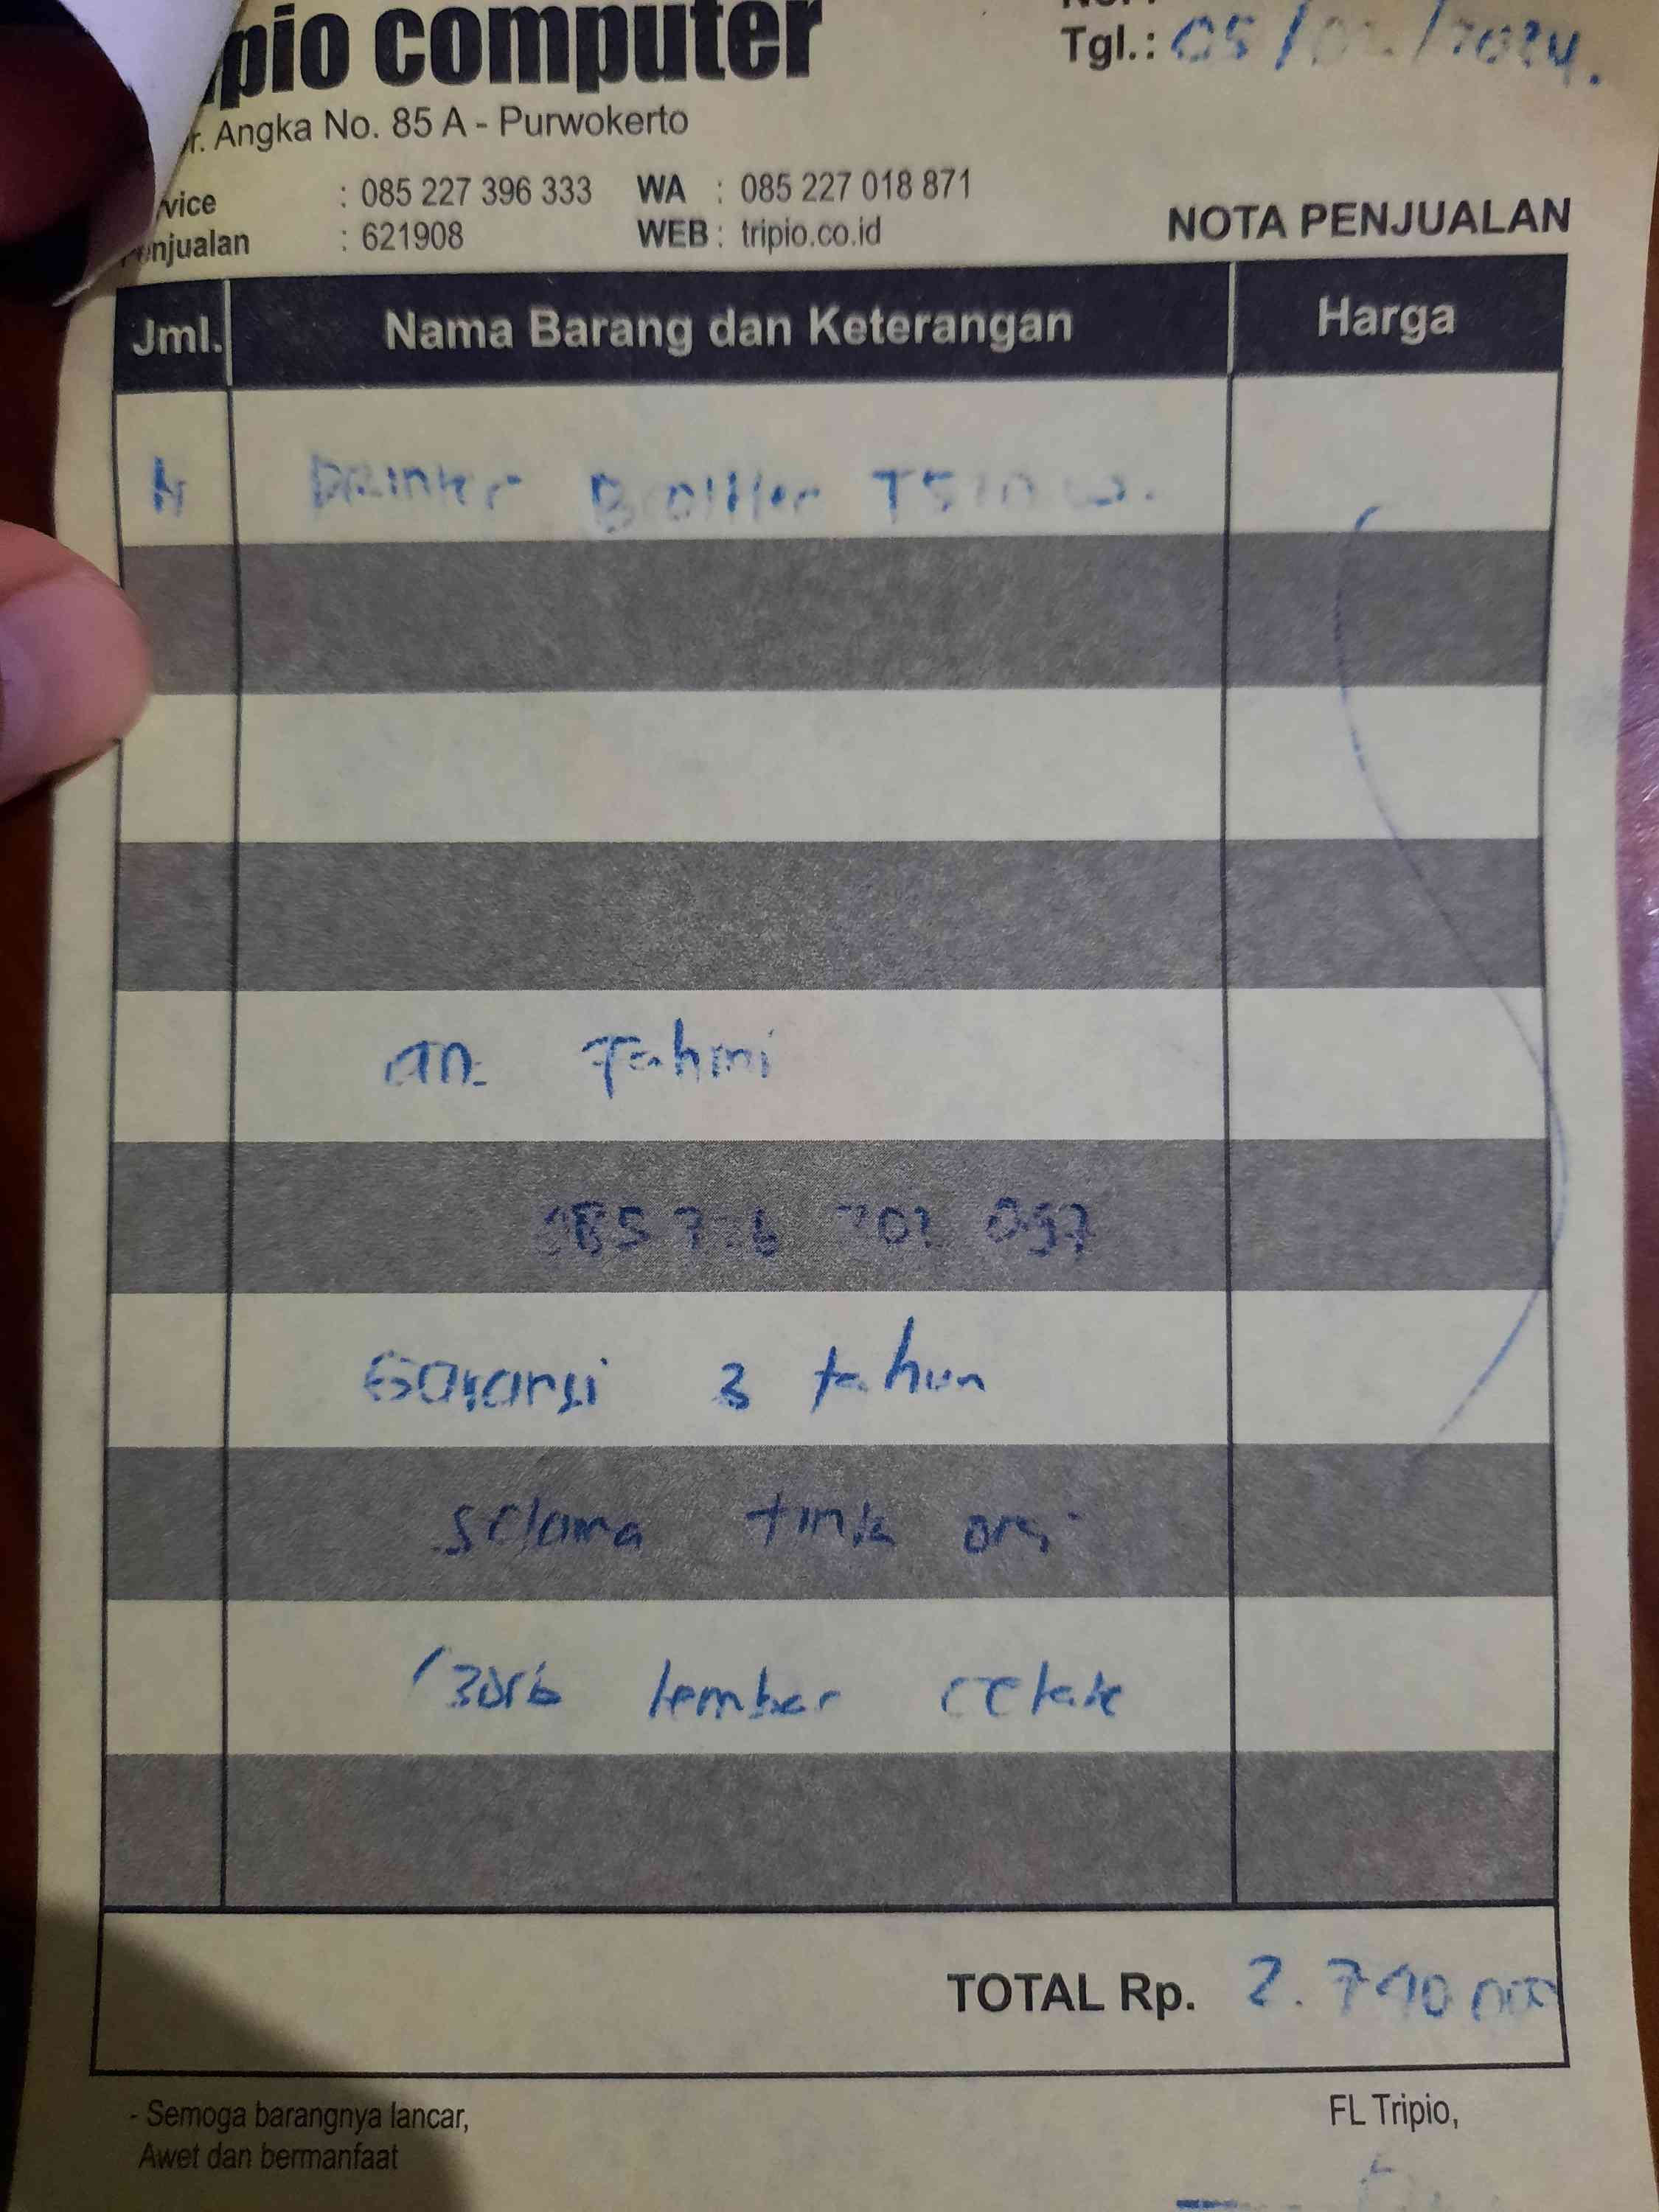 computer
Tgl.: 05/ /2024.
Angka No. 85 A - Purwokerto
: 085 227 396 333 WA : 085 227 018 871
: 621908 WEB : tripio.co.id
NOTA PENJUALAN
Jml. Nama Barang dan Keterangan Harga
Printer Brother
an. Fahmi
Garansi 3 tahun
selama tinta ori
/ 30rb lembar cetak
TOTAL Rp.
- Semoga barangnya lancar,
Awet dan bermanfaat
FL Tripio,